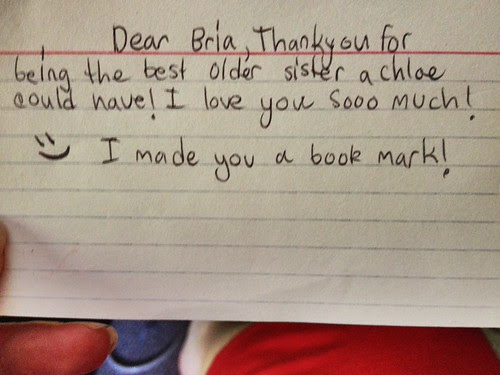 Dear Bria, Thankyou for
being the best older sister a chloe
could have! I love you sooo much!
I made you a book mark!